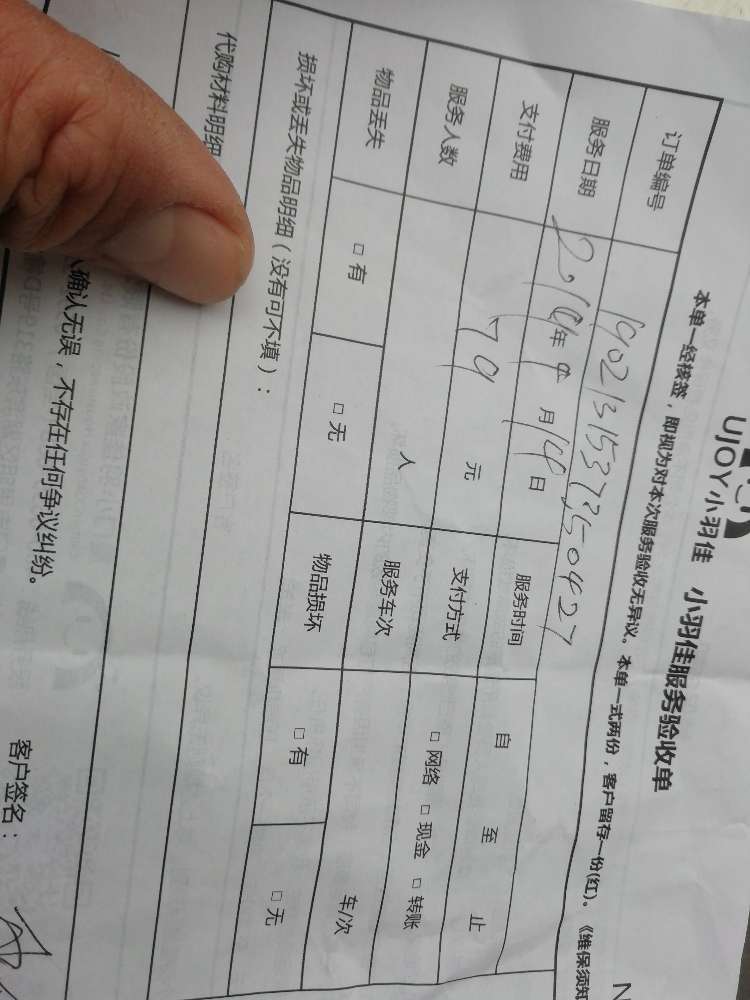 UJOY小羽佳 小羽佳服务验收单
本单一经核签，即视为对本次服务验收无异议。本单一式两份，客户留存一份(红)。《维保须知
订单编号
服务日期 年 月 14 日 服务时间 自 至 止
支付费用 79 元 支付方式 □ 网络 □ 现金 □ 转账
服务人数 人 服务车次 车/次
物品丢失 □ 有 □ 无 物品损坏 □ 有 □ 无
损坏或丢失物品明细（没有可不填）：
代购材料明细
确认无误，不存在任何争议纠纷。
客户签名：